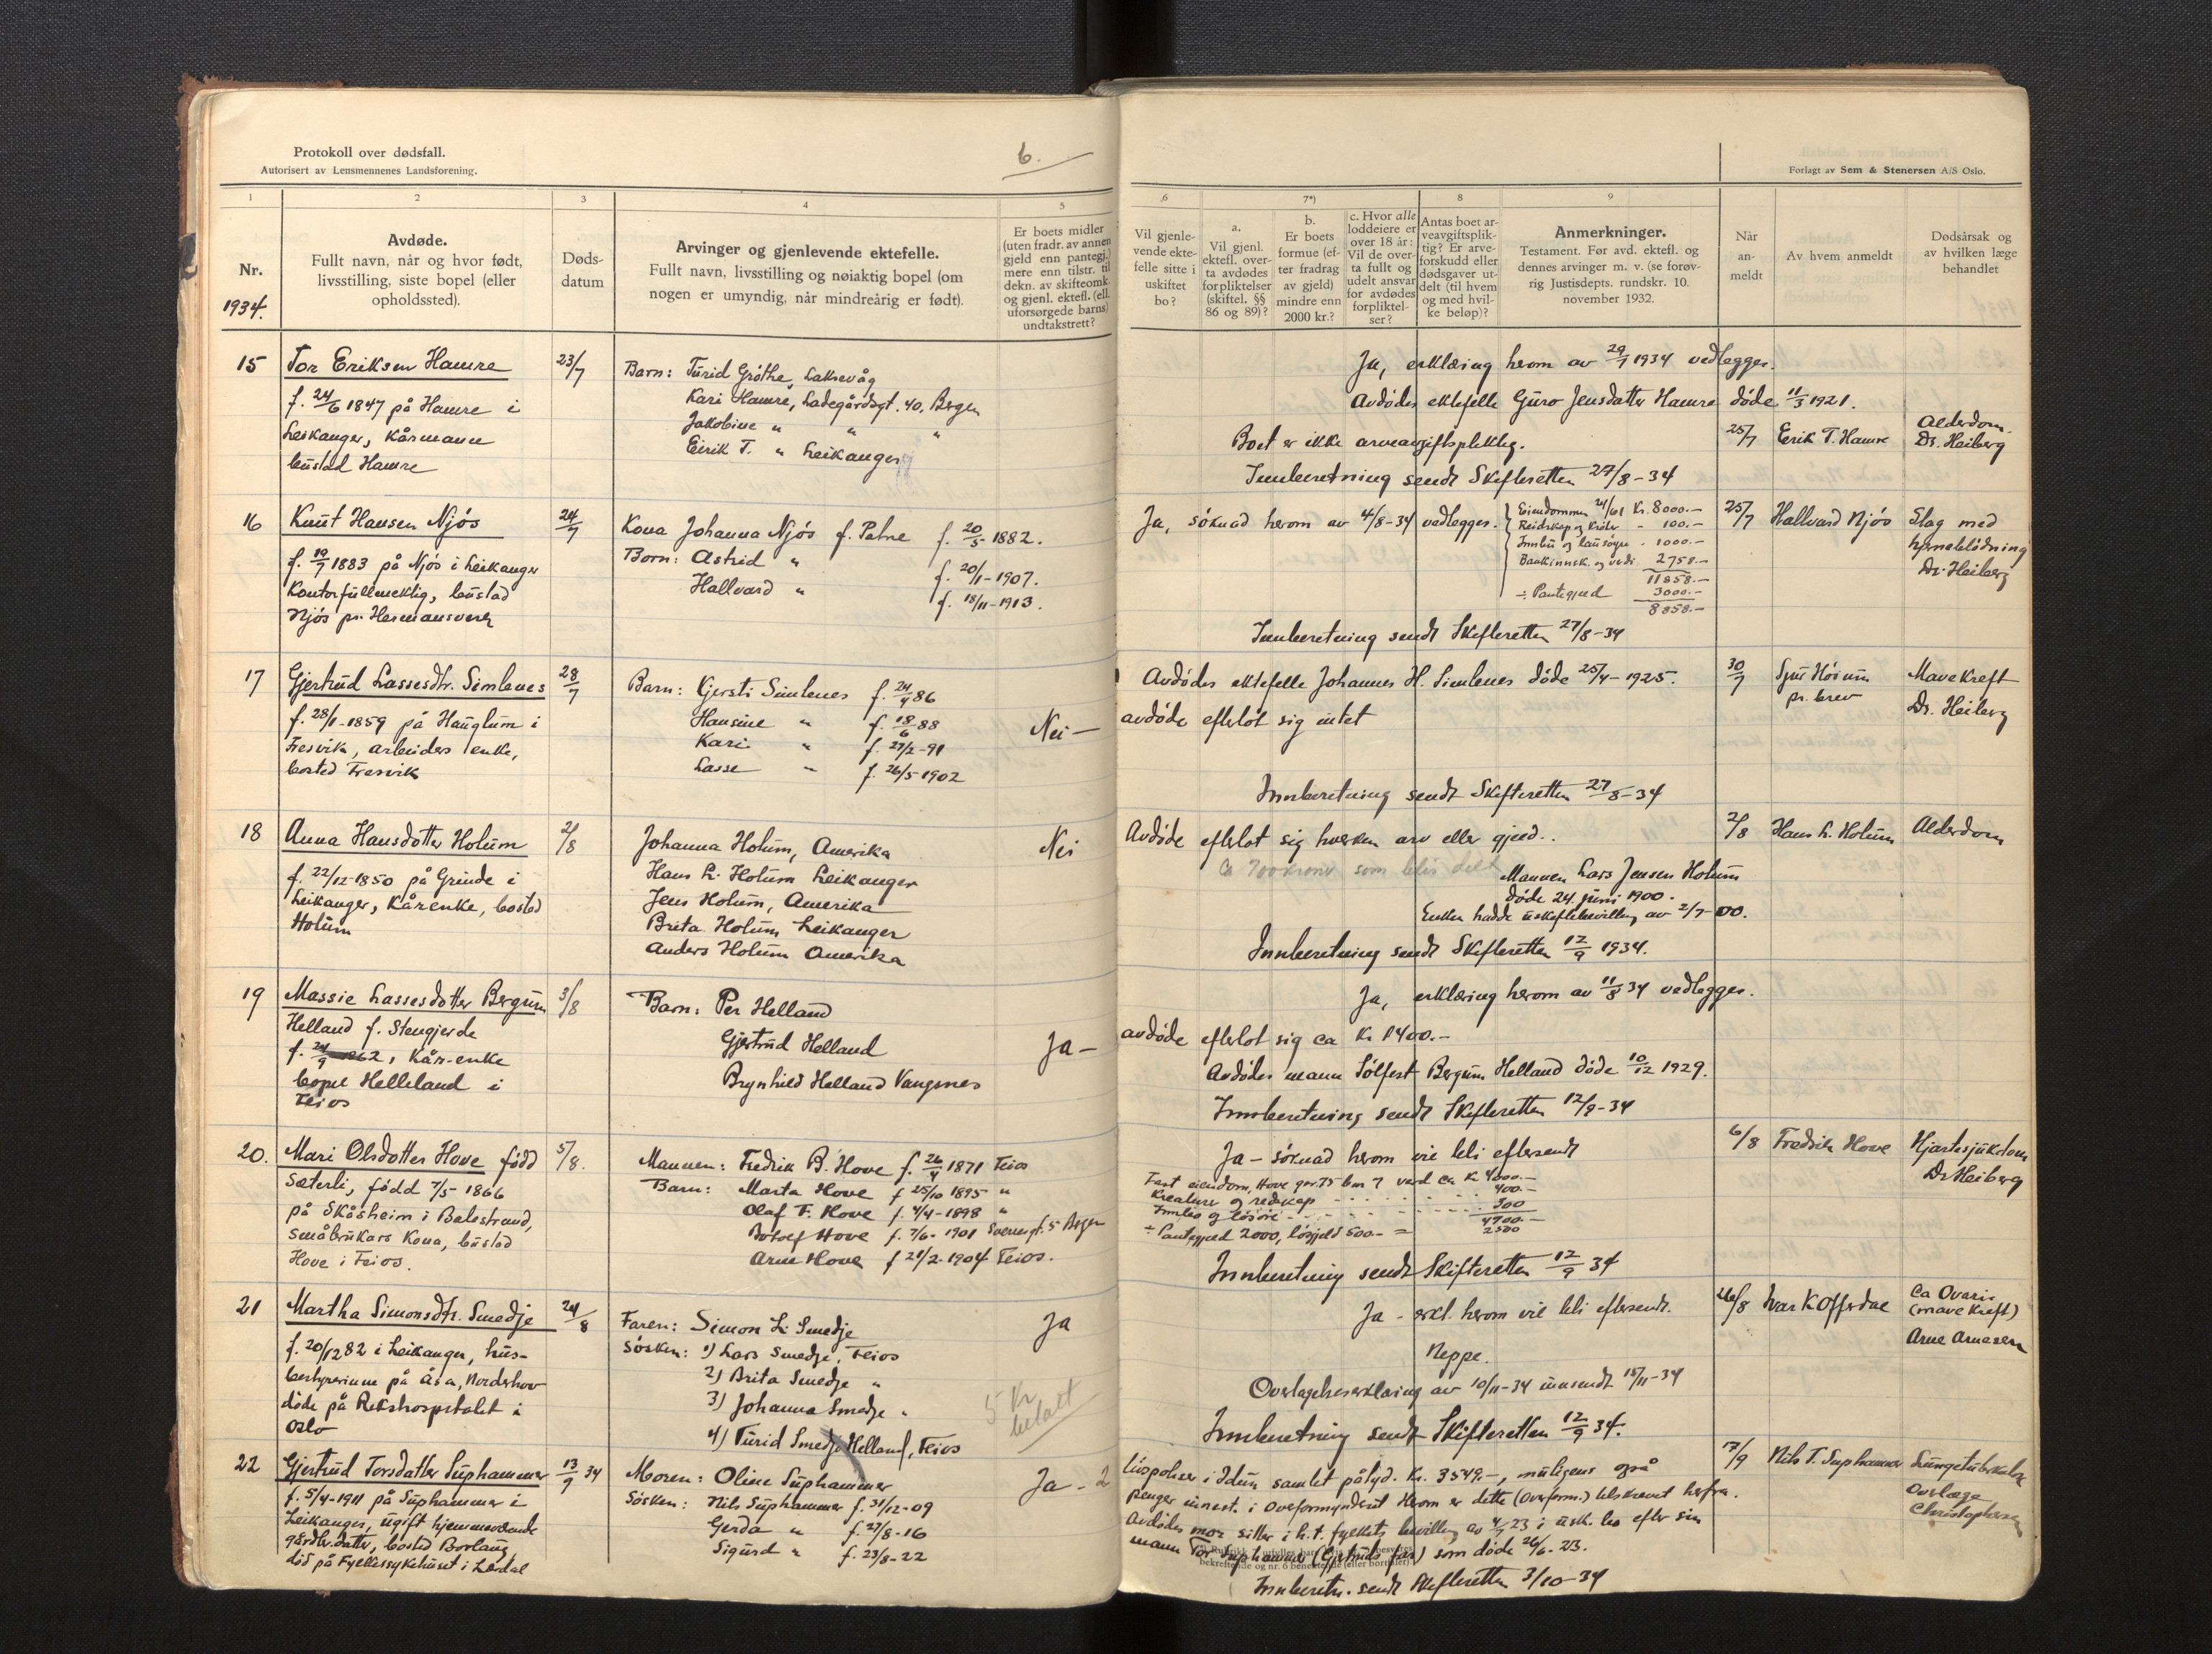 Protokoll over dødsfall.
Autorisert av Lensmennenes Landsforening.
6.
Forlagt av Sem & Stenersen A/S Oslo.
1
2
3
4
5
6
7*)
8
9
Nr.
1934.
Avdøde.
Fullt navn, når og hvor født,
livsstilling, siste bopel (eller
opholdssted).
Døds-
datum
Arvinger og gjenlevende ektefelle.
Fullt navn, livsstilling og nøiaktig bopel (om
nogen er umyndig, når mindreårig er født).
Er boets midler
(uten fradr. av annen
gjeld enn pantegj.)
mere enn tilstr. til
dekn. av skifteomk.
og gjenl. ektef. (ell.
uforsørgede barns)
undtakstrett?
Vil gjenle-
vende ekte-
felle sitte i
uskiftet
bo?
a.
Vil gjenl.
ektefl. over-
ta avdødes
forpliktelser
(skiftel. §§
86 og 89)?
b.
Er boets
formue (ef-
ter fradrag
av gjeld)
mindre enn
2000 kr.?
c. Hvor alle
loddeiere er
over 18 år:
Vil de over-
ta fullt og
udelt ansvar
for avdødes
forpliktel-
ser?
Antas boet ar-
veavgiftsplik-
tig? Er arve-
forskudd eller
dødsgaver ut-
delt (til hvem
og med hvil-
ke beløp)?
Anmerkninger.
Testament. Før avd. ektefl. og
dennes arvinger m. v. (se forøv-
rig Justisdepts. rundskr. 10.
november 1932.
Når
an-
meldt
Av hvem anmeldt
Dødsårsak og
av hvilken læge
behandlet
15
Tor Eriksen Hamre
f. 24/6 1847 på Hamre i
Leikanger, Kårmann
bustad Hamre
23/7
Barn: Turid Gróthe, Laksevåg
Kari Hamre, Ladegårdsgt. 40, Bergen
Jakobine " " "
Eirik T. " Leikanger
Ja, erklæring herom av 29/7 1934 vedlegges.
Avdødes ektefelle Guro Jensdatter Hamre døde 11/3 1921.
Boet er ikke arveavgiftspliktig.
Innberetning sendt Skifteretten 27/8-34
25/7
Eirik T. Hamre
Alderdom.
Dr. Heiberg
16
Knut Hansen Njós
f. 10/7 1883 på Njós i Leikanger
Kontorfullmektig, bustad
Njós pr. Hermansverk
24/7
Kona Johanna Njós f. Patne f. 20/5 1882.
Born: Astrid " f. 20/1-1907.
Hallvard " f. 18/11-1913.
Ja, søknad herom av 4/8-34 vedlegges.
Eiendommen 21/61 Kr. 8000.-
Reidskap og Krøter - 100.-
Innbu og lausøyre - 1000.-
Bankinnsk. og verdi. 2758.-
11858.-
÷ Pantegjeld 3000.-
8858.-
Innberetning sendt Skifteretten 27/8-34
25/7
Hallvard Njós
Slag med
hjerneblødning
Dr. Heiberg
17
Gjertrud Lassesdtr. Simlenes
f. 28/1-1859 på Hauglum i
Fresvik, arbeiders enke,
bosted Fresvik
28/7
Barn: Kjersti Simlenes f. 24/4 86
Hansine " f. 18/6 88
Kari " f. 27/2-91
Lasse " f. 26/5-1902
Nei —
Avdødes ektefelle Johannes H. Simlenes døde 25/4-1925.
avdøde efterlot sig intet
Innberetning sendt Skifteretten 27/8-34
30/7
Sjur Høium
pr. brev
Mavekreft
Dr. Heiberg
18
Anna Hansdotter Holum
f. 22/12-1850 på Grinde i
Leikanger, Kårenke, bosted
Holum
2/8
Johanna Holum, Amerika
Hans L. Holum Leikanger
Jens Holum, Amerika
Brita Holum Leikanger
Anders Holum Amerika
Nei
Avdøde efterlot sig hverken arv eller gjeld..
Ca 700 kroner som blir delt
Mannen Lars Jensen Holum
døde 24 juni 1900.
Enken hadde uskiftebevilling av 2/7-00.
Innberetning sendt Skifteretten 12/9 1934.
2/8
Hans L. Holum
Alderdom
19
Massie Lassesdotter Bergum
Helland f. Stengjerde
f. 24/9 1862, Kår-enke
bopel Helleland i
Feios
3/8
Barn: Per Helland
Gjertrud Helland
Brynhild Helland Vangsnes
Ja —
Ja, erklæring herom av 11/8 34 vedlegges.
avdøde efterlot sig ca Kr. 1400.-
Avdødes mann Sólfest Bergum Helland døde 10/12 1929.
Innberetning sendt Skifteretten 12/9-34
20.
Mari Olsdotter Hove født
Sæterli, född 7/5-1866
på Skåsheim i Balestrand,
småbrukars Kona, bustad
Hove i Feios.
5/8.
Mannen: Fredrik B. Hove f. 26/4 1871 Feios
Barn: Marta Hove f 25/10 1895 "
Olaf F. Hove f. 4/4-1898 "
Botolf Hove f. 7/6-1901 5 Bergen
Arne Hove f 21/2-1904 Feios.
Ja — søknad herom vil bli eftersendt
Fast eiendom, Hove gnr. 75 bnr. 7 verd ca Kr 4000.-
Kreaturer og redskap 400.-
Innbo og løsøre 300
4700.-
÷ Pantegjeld 2000, løsgjeld 500.- = 2500
Innberetning sendt Skifteretten 12/9 34
6/8
Fredrik Hove
Hjartesjukdom
Dr Heiberg
21
Martha Simonsdtr. Smedje
f. 20/12 82 i Leikanger, hus-
bestyrerinne på Åsa, Norderhov
døde på Rikshospitalet i
Oslo
24/8
Faren: Simon L. Smedje
Søsken: 1) Lars Smedje, Feios
2) Brita Smedje "
3) Johanna Smedje "
4) Turid Smedje Helland, Feios
Ja
5 kr
betalt
Ja - erkl. herom vil bli eftersendt.
Neppe.
Overtagelseserklæring av 10/11-34 innsendt 15/11-34
Innberetning sendt Skifteretten 12/9 34.
26/8
Ivar K Offerdal
Ca Ovarii
(mavekreft)
Arne Arnesen
22
Gjertrud Torsdatter Suphammer
f. 5/4-1911 på Suphammer i
Leikanger, ugift hjemmeværende
gårdbr. datter, bosted Borlaug
död på Fylkessykehuset i Lærdal
13/9 34
Moren: Oline Suphammer
Søsken: Nils Suphammer f. 31/12-09
Gerda " f. 27/8-16
Sigurd " f. 23/8-22
Ja - 2
livspoliser i Idun samlet pålyd. Kr. 3549.-, muligens også
penger innest. i Overformynderiet Herom er dette (Overform.) tilskrevet herfra.
Avdødes mor sitter i h.t. fylkets bevilling av 4/7 23 i usk. bo efter sin
mann Tor Suphammer (Gjertruds far) som døde 26/6-23.
Innberetn. sendt Skifteretten 3/10-34
7/9
Nils T. Suphammer
Lungetuberkulose
Overlæge
Christophersen